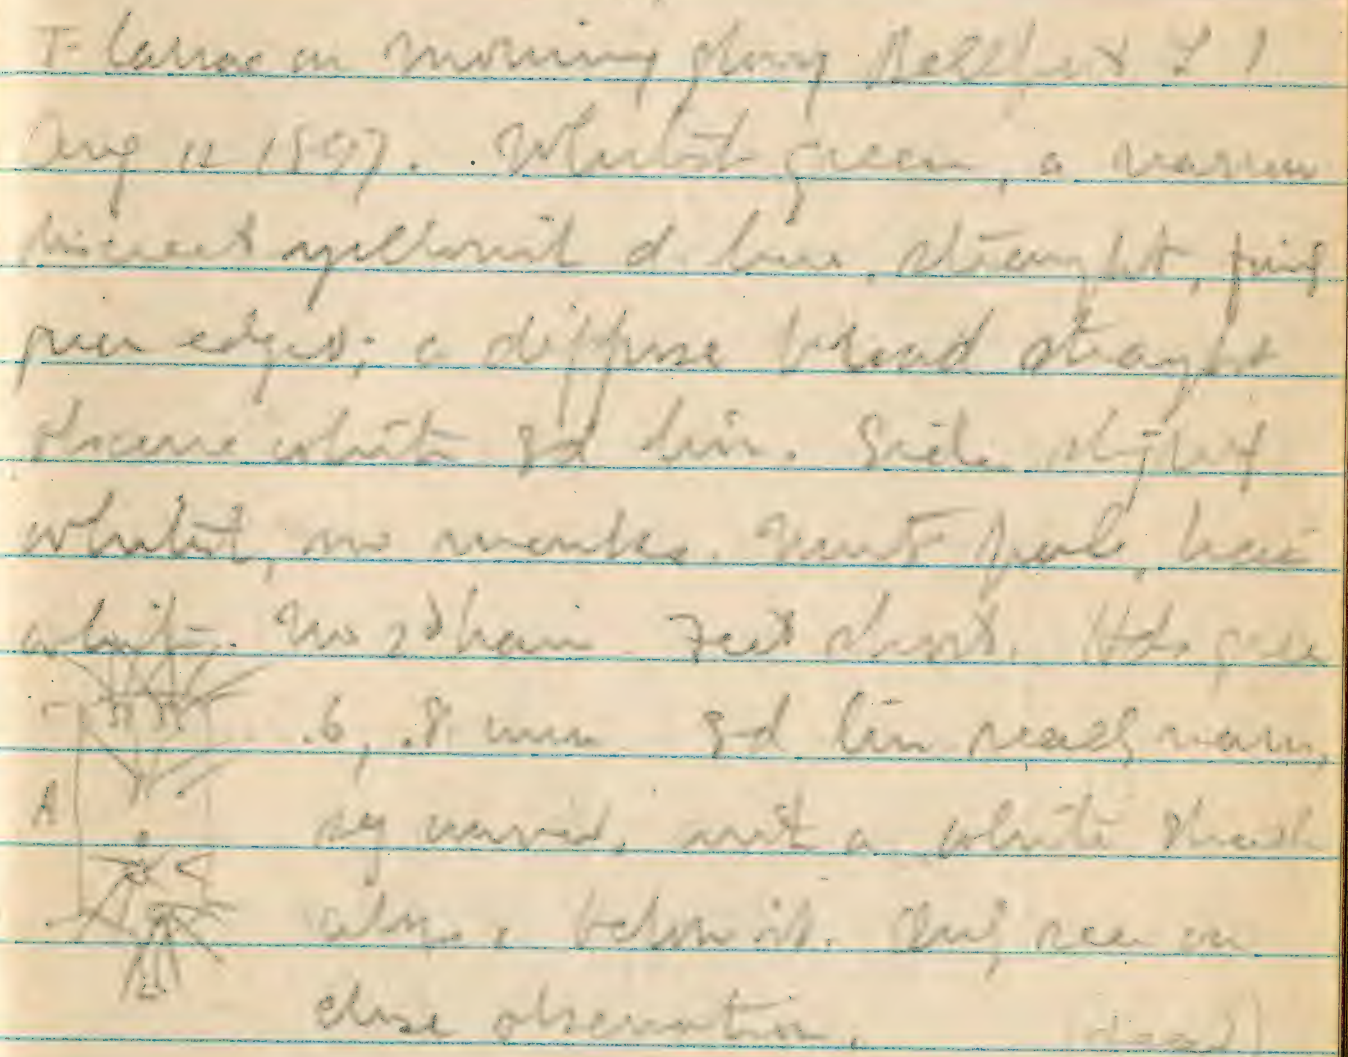 Larvae on morning glory Bellport L I
Aug 11 1897. Whitish green, a narrow
distinct yellowish d. line, straight, faint
green edges; a diffuse broad straight
obscure white sd lin. Side slightly
whitish, no marks. Vent pale, hair
white. No 2d hair. Feet short. Hd. green
.6, .8 mm sd lin narrow,
A
with a white streak
also, below it. Only seen on
close observation. (dead)